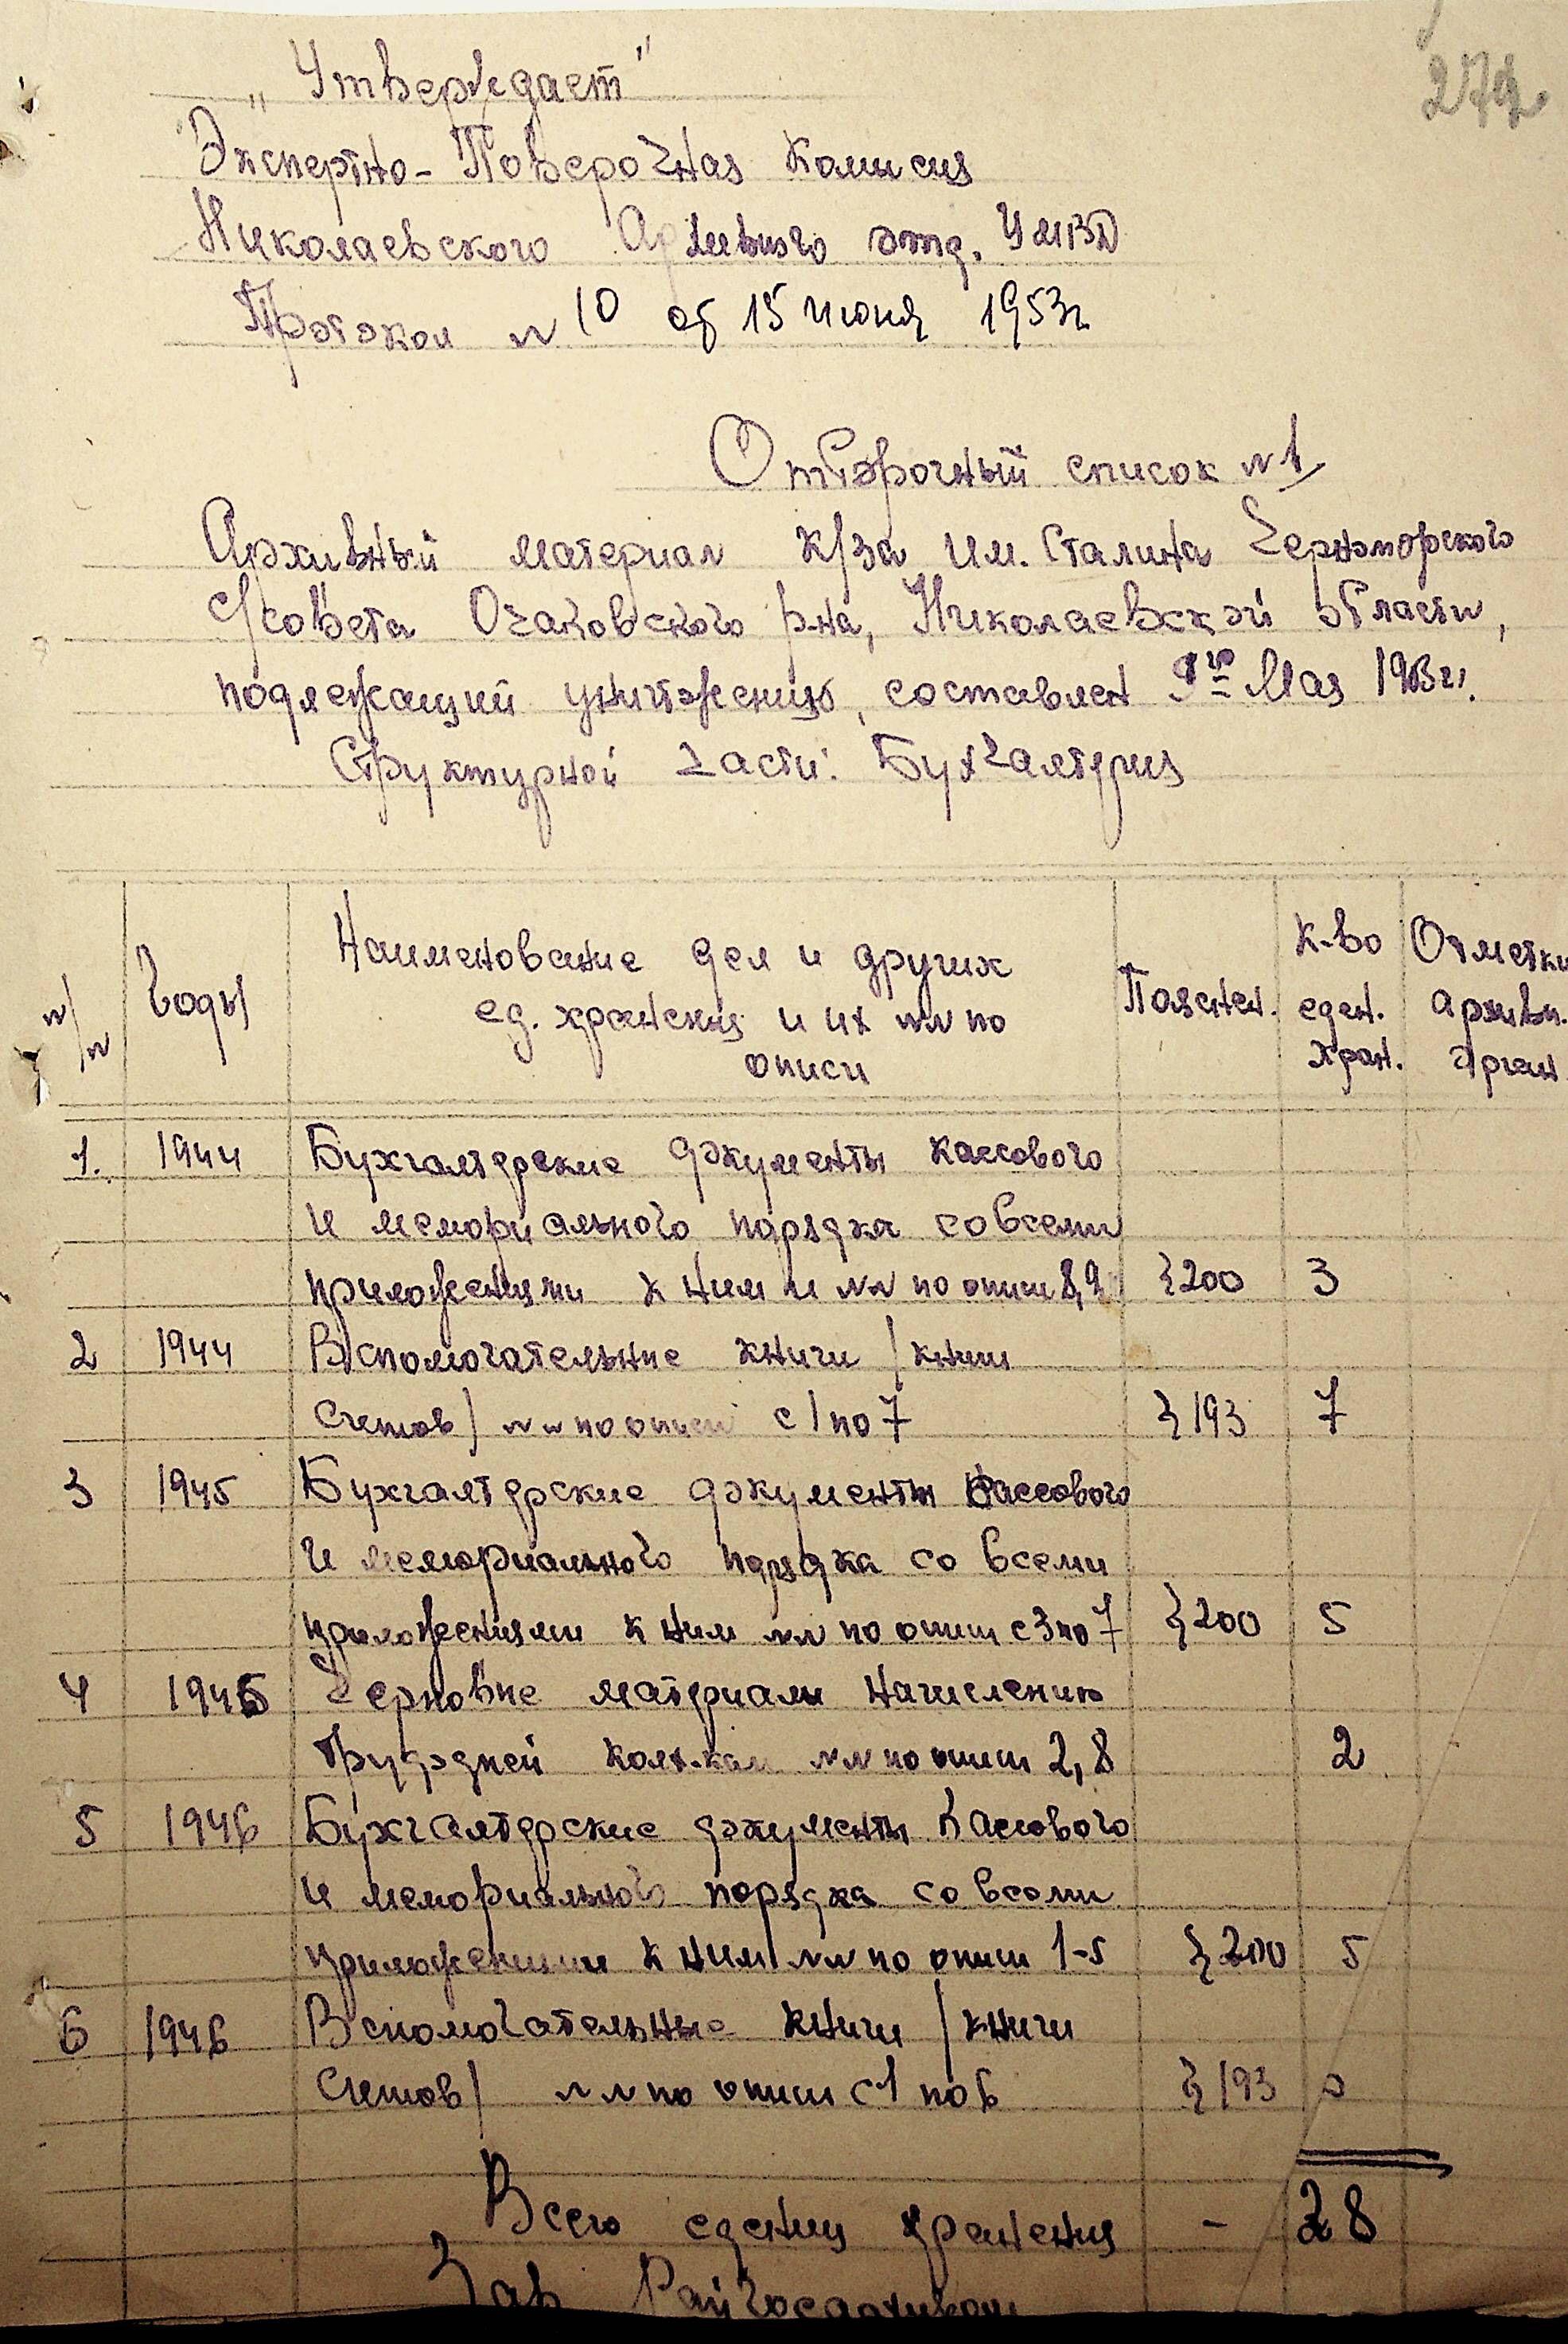 274
„Утверждает"
Экспертно-Поверочная Комисия
Николаевского Архивного отд. УМВД
Протокол № 10 от 15 июня 1953г.
Отборочный список №1
Архивный материал к/за им. Сталина Черноморского
С/совета Очаковского р-на, Николаевской области,
подлежащий уничтожению, составлен 9го Мая 1953г.
Структурной части: Бухгалтерия
№/№
Годы
Наименование дел и других
ед. хранения и их №№ по
описи
Пояснен.
К-во
еден.
хран.
Отметки
архивн.
орган
1. 1944 Бухгалтерские документы кассового
и мемориального порядка со всеми
приложениями к ним и №№ по описи 8,9 }200 3
2 1944 Вспомогательние книги /книги
Счетов/ №№ по описи с 1 по 7 }193 7
3 1945 Бухгалтерские документы Кассового
и мемориального порядка со всеми
приложениями к ним №№ по описи с 3 по 7 }200 5
4 1945 Черновие материалы начислению
трудодней колх-кам №№ по описи 2,8 2
5 1946 Бухгалтерские документы Кассового
и мемориального порядка со всеми
приложениями к ним №№ по описи 1-5 }200 5
6 1946 Вспомогательные книги /книги
Счетов/ №№ по описи с 1 по 6 }193
Всего едениц хранения - 28
Зав Райгосархивом